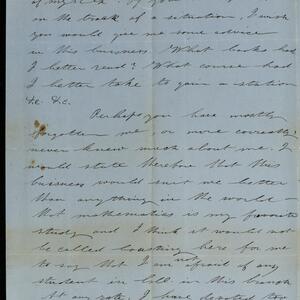 in the track of a situation, I wish
you would give me some advice
in this business. What books had
I better read? What course had
I better take to gain a station
&c. &c.
Perhaps you have mostly
forgotten me, or more correctly
never knew much about me. I
would state therefore that this
business would suit me better
than anything in the world—
that mathematics is my favorite
study and I think it would not
be called boasting here for me
to say that I am not afraid of any
student in in this branch
At any rate, I have